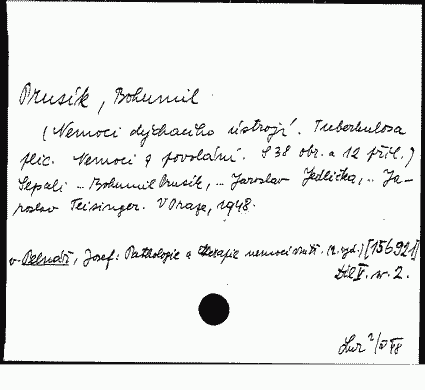 Prusík, Bohumil
(Nemoci dýchacího ústrojí. Tuberkulosa
plic. Nemoci z povolání. S 38 obr. a 12 příl.)
Sepsali .. Bohumil Prusík, .. Jaroslav Jedlička, .. Ja-
roslav Teisinger. V Praze, 1948.
v. Pelnář, Josef: Pathologie a therapie nemocí vnitř. (2. vyd.) [156921]
Díl II. sv. 2.